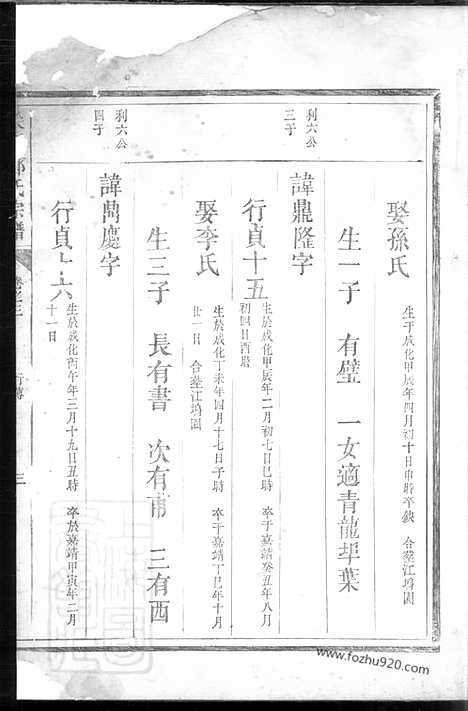 娶孫氏 生于成化甲辰年四月初十日申時卒缺 合塟江塢園
生一子 有璧 一女適青龍埠葉
利六公
三子
諱鼎隆字
行貞十五 生於成化甲辰年二月初七日巳時 卒于嘉靖癸丑年八月
初四日酉時
娶李氏 生於成化丁未年四月十七日子時 卒于嘉靖丁巳年十月
廿一日 合塟江塢園
生三子 長有書 次有甫 三有酉
利六公
四子
諱鼎慶字
行貞十六 生於成化丙午年三月十九日丑時 卒於嘉靖甲寅年二月
十一日
氏宗譜 卷之三 行傳 三
www.fozhu920.com